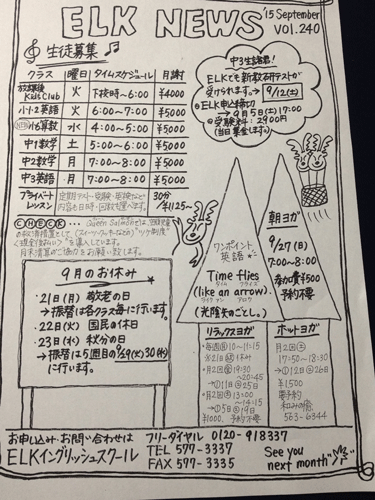 ELK NEWS
'15 September
VOl.240
生徒募集
クラス 曜日 タイムスケジュール 月謝
放課後 Kids Club 火 下校時~6:00 ¥4000
小1·2英語 火 6:00~7:00 ¥5000
小6算数 水 4:00~5:00 ¥5000
中1数学 土 5:00~6:00 ¥5000
中2数学 月 7:00~8:00 ¥5000
中3英語 月 7:00~8:00 ¥5000
プライベートレッスン
30分
¥1125~
中3生諸君!
ELKでも新教研テストが
受けられます。→9/12(土)
◎ELK申込締切
→9月5日(土)17:00
◎受験料: 2900円
(当日集金します。)
CHECK
を導入しています。
9月のお休み
・21日(月) 敬老の日
→振替は各クラス毎に行います。
・22日(火) 国民の休日
・23日(水) 秋分の日
→振替は5週目の9/29(火)30(水)
に行います。
ワンポイント
英語
Time flies
タイム フライズ
(like an arrow).
ライク アン アロウ
(光陰矢のごとし。)
朝ヨガ
9/27(日)
7:00~8:00
参加費¥500
予約不要
リラックスヨガ
・毎週(月)10~11:15
※21(月)休み
・月2回(金)19:30
~20:45
→①11日②25日
・月2回(土)13:00
~14:15
→①5日②19日
¥1000、予約不要
ホットヨガ
月2回(土)
17:50~18:30
→①12日②26日
¥1500
要予約
和みの癒
563-6344
お申し込み・お問い合わせは
フリーダイヤル 0120-918337
ELKイングリッシュスクール
TEL 577-3337
FAX 577-3335
See you
next month